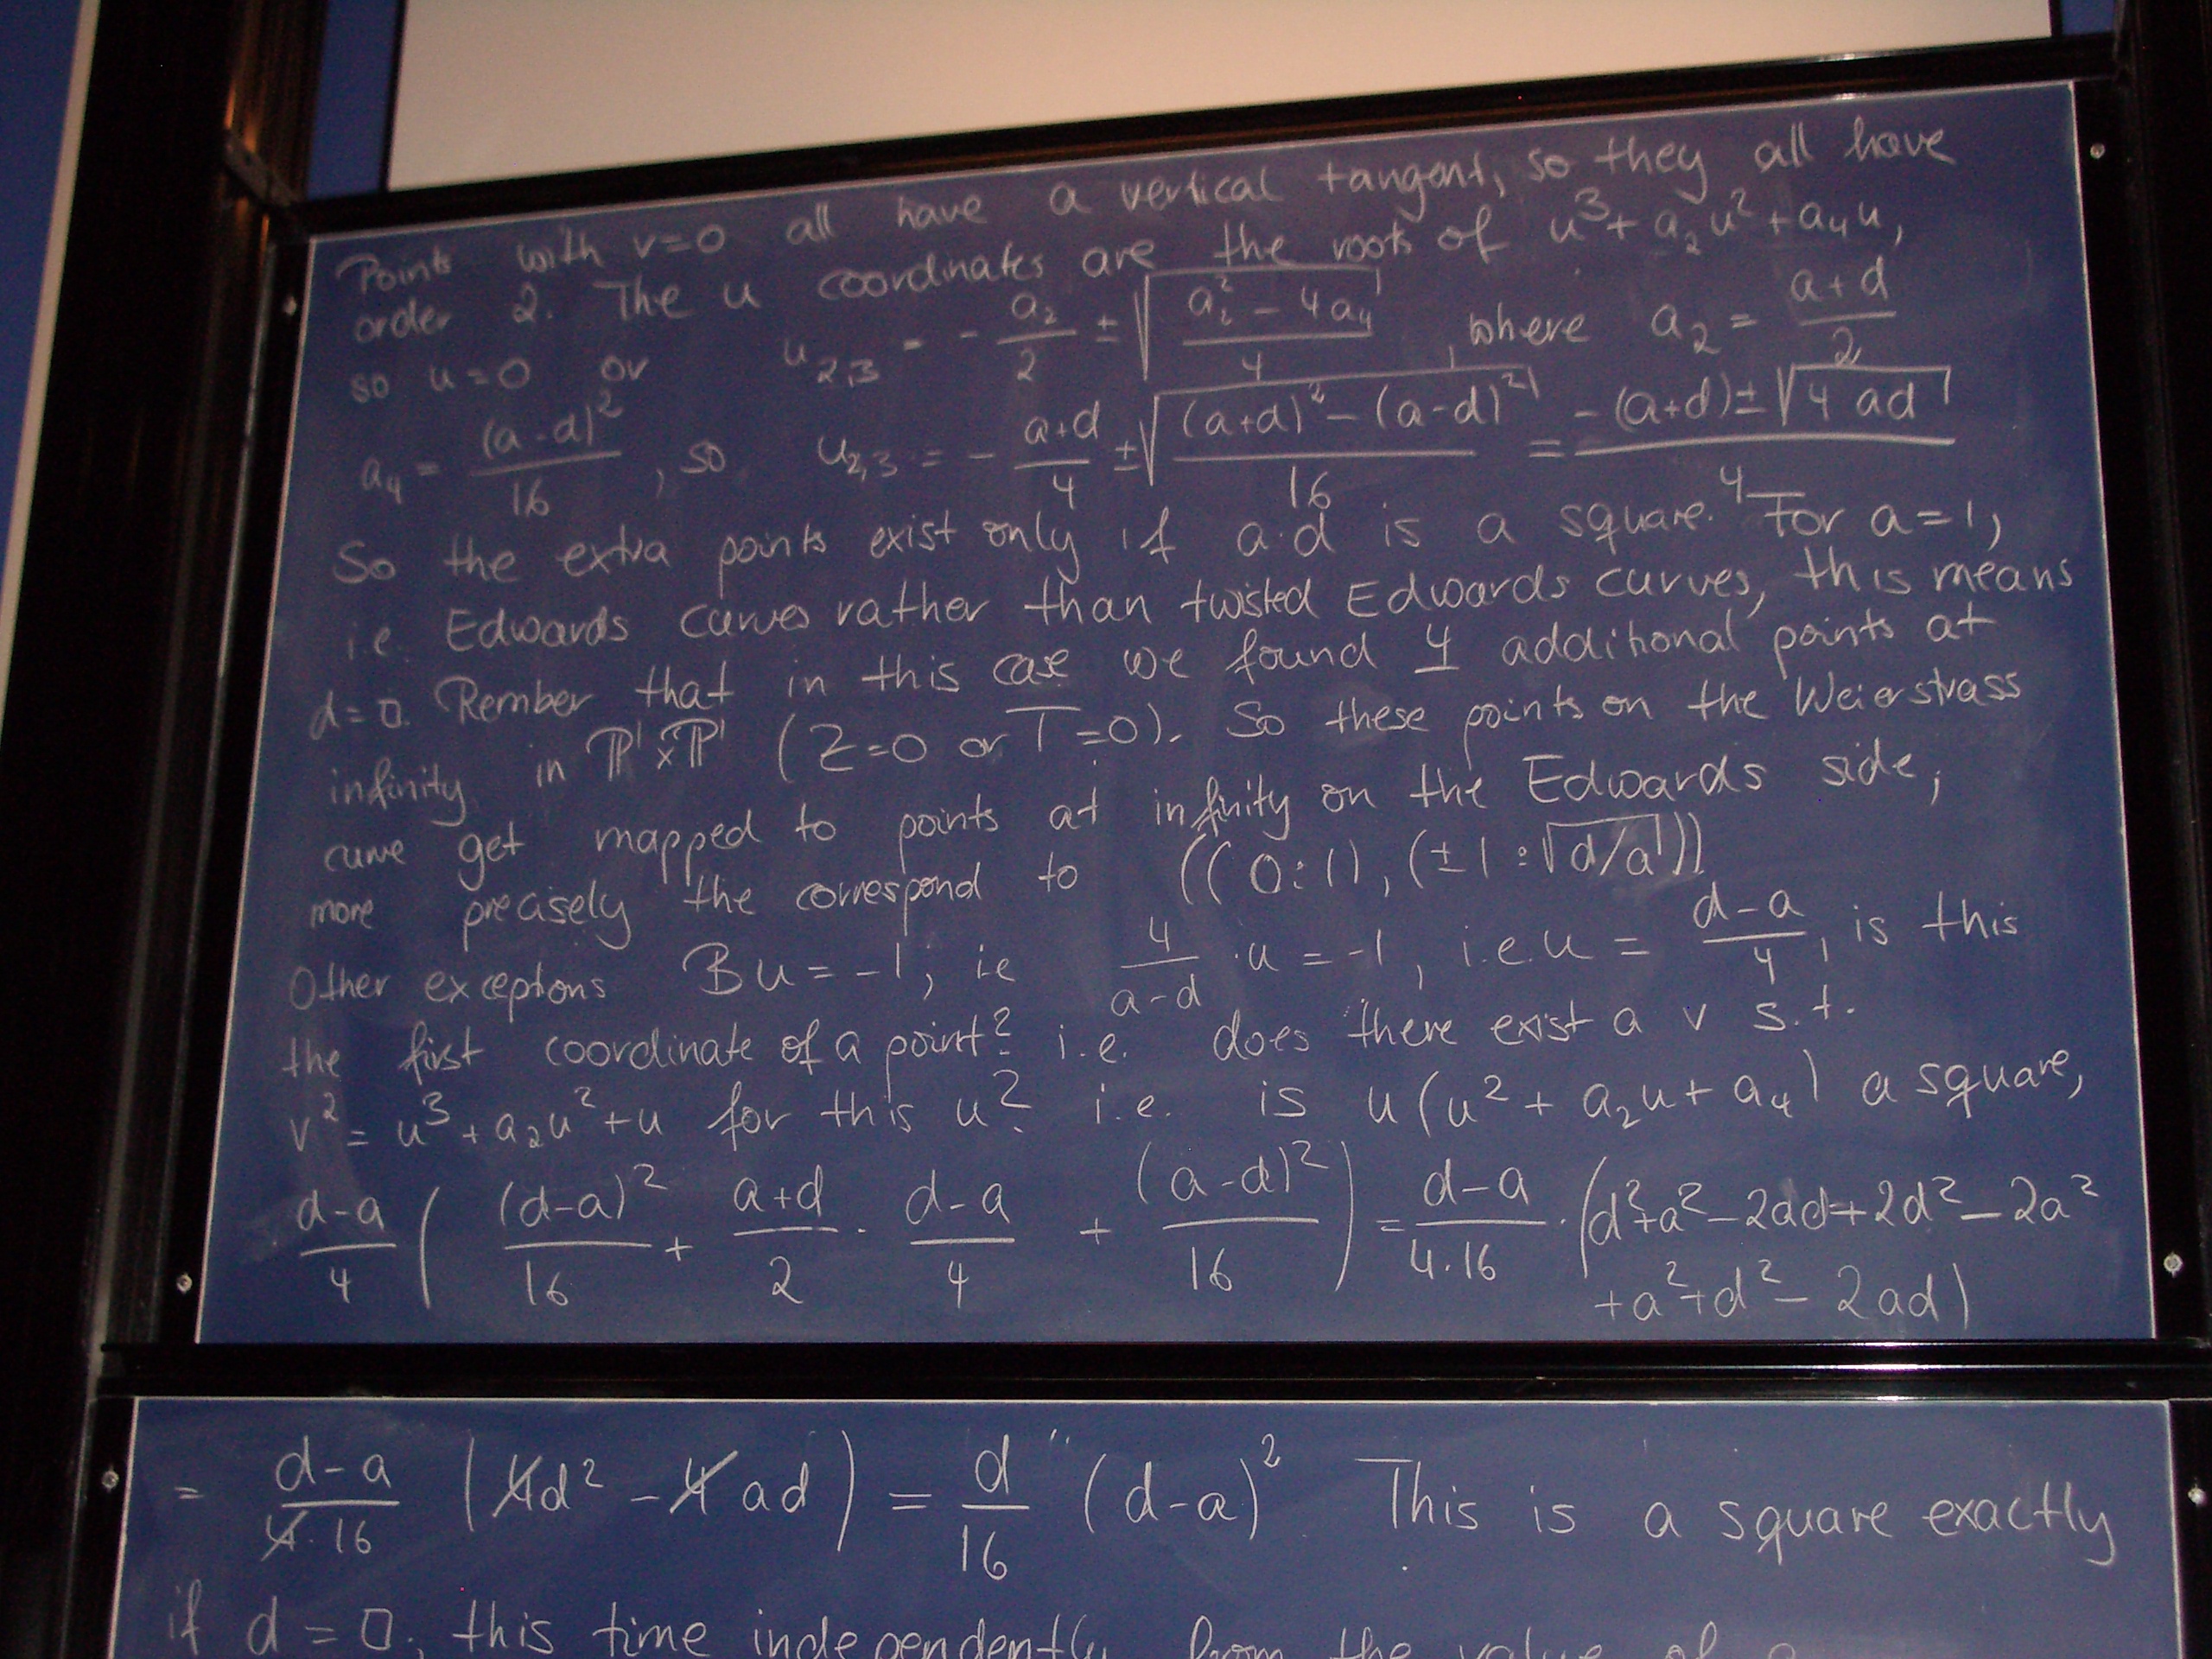 Points with v=0 all have a vertical tangent, so they all have
order 2. The u coordinates are the roots of u³+a₂u²+a₄u,
so u=0 or u₂,₃ = -a₂/2 ± √((a₂²-4a₄)/4), where a₂ = (a+d)/2
a₄ = (a-d)²/16, so u₂,₃ = -(a+d)/4 ± √(((a+d)²-(a-d)²)/16) = (-(a+d)±√(4ad))/4
So the extra points exist only if a·d is a square. For a=1,
i.e. Edwards curves rather than twisted Edwards curves, this means
d=□. Rember that in this case we found 4 additional points at
infinity in ℙ¹×ℙ¹ (Z=0 or T=0). So these points on the Weierstrass
curve get mapped to points at infinity on the Edwards side,
more precisely the correspond to ((0:1),(±1:√(d/a)))
Other exceptions Bu=-1, i.e 4/(a-d)·u=-1, i.e.u = (d-a)/4, is this
the first coordinate of a point? i.e. does there exist a v s.t.
v² = u³+a₂u²+u for this u? i.e. is u(u²+a₂u+a₄) a square,
(d-a)/4 ((d-a)²/16 + (a+d)/2 · (d-a)/4 + (a-d)²/16) = (d-a)/(4·16) · (d²+a²-2ad+2d²-2a²
+a²+d²-2ad)
= (d-a)/(4·16) (4d²-4ad) = d/16 (d-a)². This is a square exactly
if d=□, this time independently from the value of a